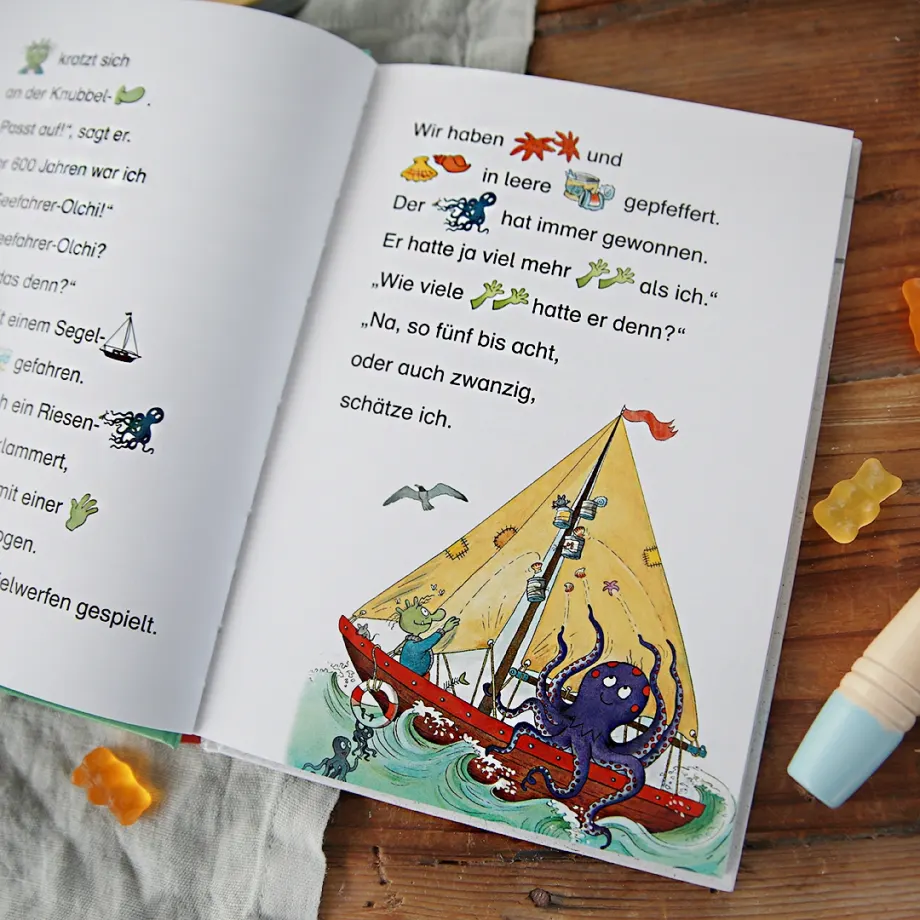 kratzt sich
an der Knubbel-
Passt auf!“, sagt er.
600 Jahren war ich
Seefahrer-Olchi!“
Seefahrer-Olchi?
das denn?“
einem Segel-
gefahren.
ein Riesen-
klammert,
mit einer
gespielt.
Wir haben und
in leere gepfeffert.
Der hat immer gewonnen.
Er hatte ja viel mehr als ich.“
„Wie viele hatte er denn?“
„Na, so fünf bis acht,
oder auch zwanzig,
schätze ich.